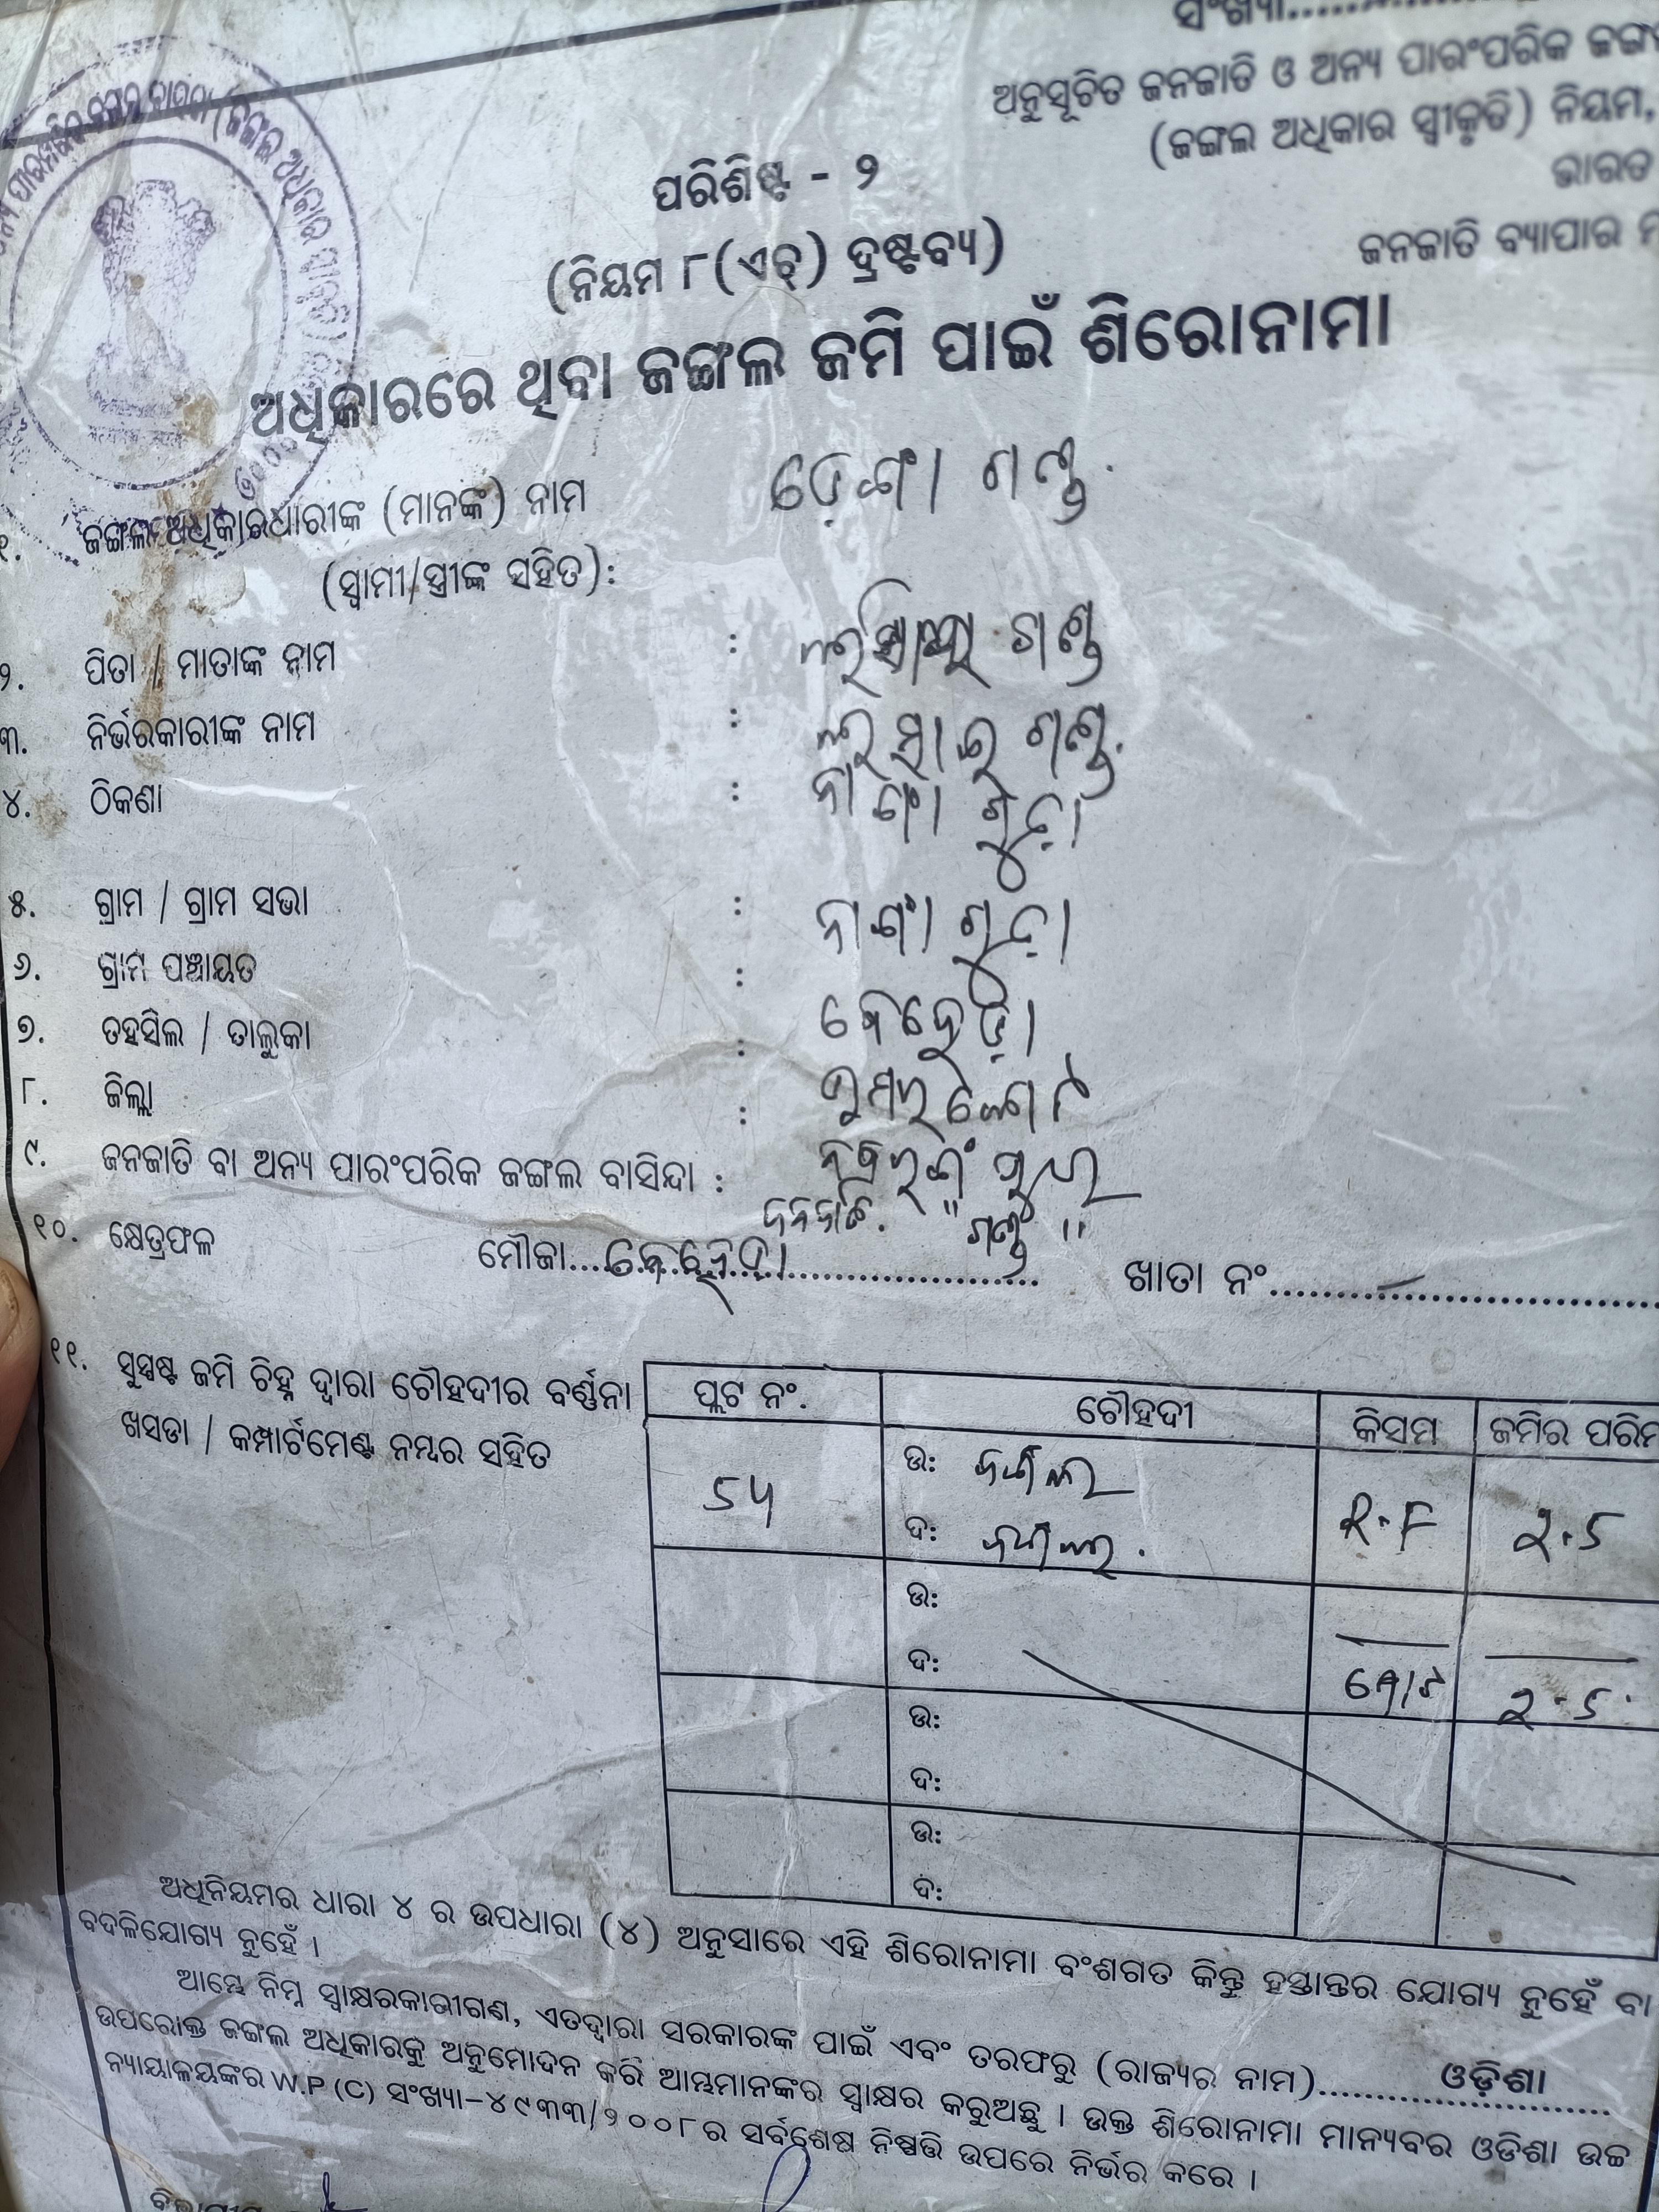 ସଂଖ୍ୟା..................
ଅନୁସୂଚିତ ଜନଜାତି ଓ ଅନ୍ୟ ପାରଂପରିକ ଜଙ୍ଗ
(ଜଙ୍ଗଲ ଅଧିକାର ସ୍ୱୀକୃତି) ନିୟମ,
ଭାରତ
ଜନଜାତି ବ୍ୟାପାର
ପରିଶିଷ୍ଟ - ୨
(ନିୟମ ୮(ଏଚ୍) ଦ୍ରଷ୍ଟବ୍ୟ)
ଅଧିକାରରେ ଥିବା ଜଙ୍ଗଲ ଜମି ପାଇଁ ଶିରୋନାମା
୧. ଜଙ୍ଗଲ ଅଧିକାରଧାରୀଙ୍କ (ମାନଙ୍କ) ନାମ ଗଣ୍ଡ
(ସ୍ୱାମୀ/ସ୍ତ୍ରୀଙ୍କ ସହିତ):
୨. ପିତା / ମାତାଙ୍କ ନାମ : ଗଣ୍ଡ
୩. ନିର୍ଭରକାରୀଙ୍କ ନାମ : ଗଣ୍ଡ
୪. ଠିକଣା : ନାଗଁା ଗୁଡ଼ା
୫. ଗ୍ରାମ / ଗ୍ରାମ ସଭା : ନାଗଁା ଗୁଡ଼ା
୬. ଗ୍ରାମ ପଞ୍ଚାୟତ : ବେହେଡ଼ା
୭. ତହସିଲ / ତାଲୁକା : ଉମରକୋଟ
୮. ଜିଲ୍ଲା : ନବରଙ୍ଗପୁର
୯. ଜନଜାତି ବା ଅନ୍ୟ ପାରଂପରିକ ଜଙ୍ଗଲ ବାସିନ୍ଦା : ଜନଜାତି. "ଗଣ୍ଡ"
୧୦. କ୍ଷେତ୍ରଫଳ ମୌଜା....ବେହେଡ଼ା.................. ଖାତା ନଂ..........................
୧୧. ସୁସ୍ପଷ୍ଟ ଜମି ଚିହ୍ନ ଦ୍ୱାରା ଚୌହଦୀର ବର୍ଣ୍ଣନା
ଖସଡା / କମ୍ପାର୍ଟମେଣ୍ଟ ନମ୍ବର ସହିତ
ପ୍ଲଟ ନଂ. ଚୌହଦୀ କିସମ ଜମିର ପରିମ
ଉ: ଜଙ୍ଗଲ
ଦ: ଜଙ୍ଗଲ.
ଉ:
ଦ:
ମୋଟ
ଉ:
ଦ:
ଉ:
ଦ:
ଅଧିନିୟମର ଧାରା ୪ ର ଉପଧାରା (୪) ଅନୁସାରେ ଏହି ଶିରୋନାମା ବଂଶଗତ କିନ୍ତୁ ହସ୍ତାନ୍ତର ଯୋଗ୍ୟ ନୁହେଁ ବା
ବଦଳିଯୋଗ୍ୟ ନୁହେଁ ।
ଆମ୍ଭେ ନିମ୍ନ ସ୍ୱାକ୍ଷରକାରୀଗଣ, ଏତଦ୍ୱାରା ସରକାରଙ୍କ ପାଇଁ ଏବଂ ତରଫରୁ (ରାଜ୍ୟର ନାମ)..........ଓଡ଼ିଶା..........
ଉପରୋକ୍ତ ଜଙ୍ଗଲ ଅଧିକାରକୁ ଅନୁମୋଦନ କରି ଆମ୍ଭମାନଙ୍କର ସ୍ୱାକ୍ଷର କରୁଅଛୁ । ଉକ୍ତ ଶିରୋନାମା ମାନ୍ୟବର ଓଡିଶା ଉଚ୍ଚ
ନ୍ୟାୟାଳୟଙ୍କର W.P (C) ସଂଖ୍ୟା-୪୯୩୩/୨୦୦୮ର ସର୍ବଶେଷ ନିଷ୍ପତ୍ତି ଉପରେ ନିର୍ଭର କରେ ।